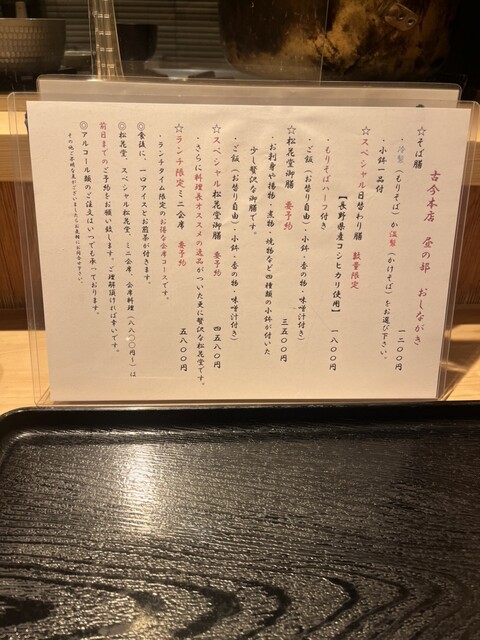 古今本店 昼の部 おしながき
☆そば膳 一二〇〇円
・冷製(もりそば)か温製(かけそば)をお選び下さい。
・小鉢一品付
☆スペシャル日替わり膳 数量限定 一八〇〇円
【長野県産コシヒカリ使用】
・もりそばハーフ付き
・ご飯(お替り自由)・小鉢・香の物・味噌汁付き)
☆松花堂御膳 要予約 三五〇〇円
・お刺身や揚物・煮物・焼物など四種類の小鉢が付いた
少し贅沢な御膳です。
・ご飯(お替り自由)・小鉢・香の物・味噌汁付き)
☆スペシャル松花堂御膳 要予約 四五八〇円
・さらに料理長オススメの逸品がついた更に贅沢な松花堂です。
☆ランチ限定ミニ会席 要予約 五八〇〇円
・ランチタイム限定のお得な会席コースです。
◎食後に、一口アイスとお煎茶が付きます。
◎松花堂、スペシャル松花堂、ミニ会席、会席料理(八八〇〇円~)は
前日までのご予約をお願い致します。ご理解頂ければ幸いです。
◎アルコール類のご注文はいつでも承っております。
その他ご不明な点がございましたらお気軽にお尋ね下さい。